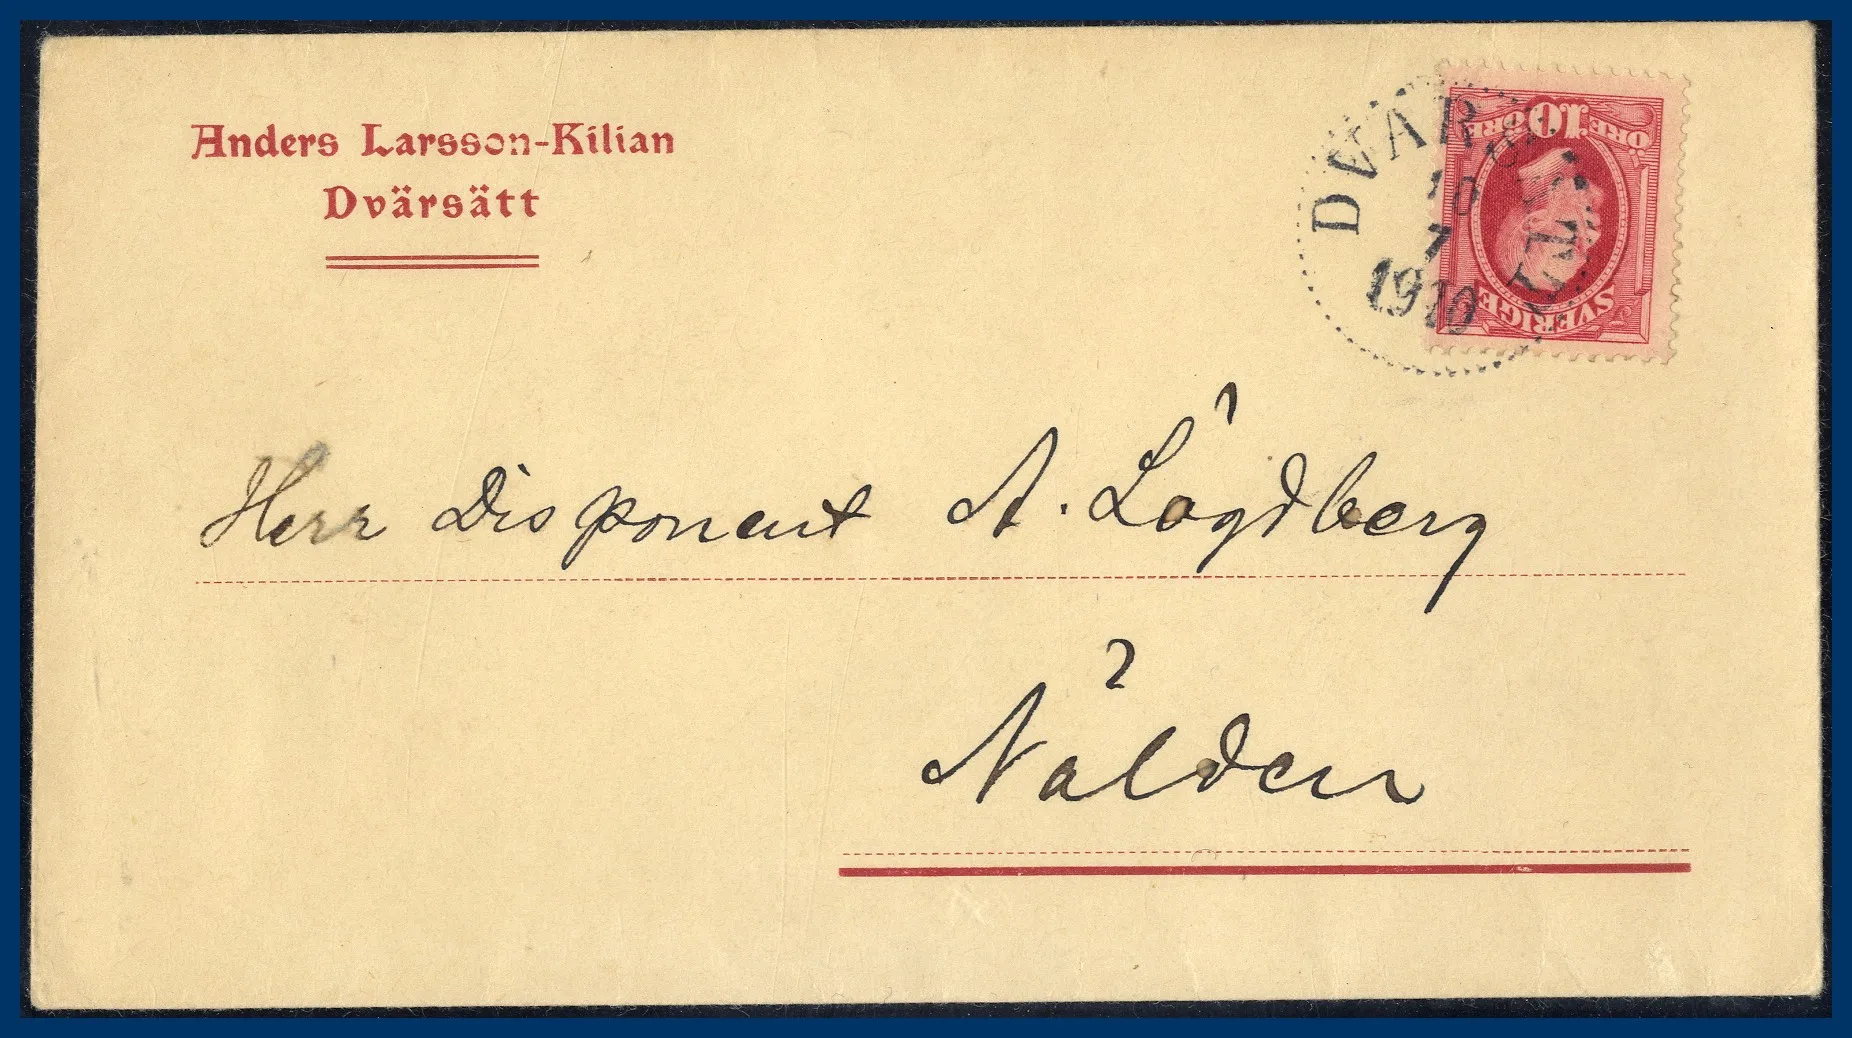 Anders Larsson-Kilian
Dvärsätt
DVÄRSÄTT
10
7
1910
10
ÖRE ÖRE
SVERIGE
Herr Disponent A. Lögdberg
Nälden